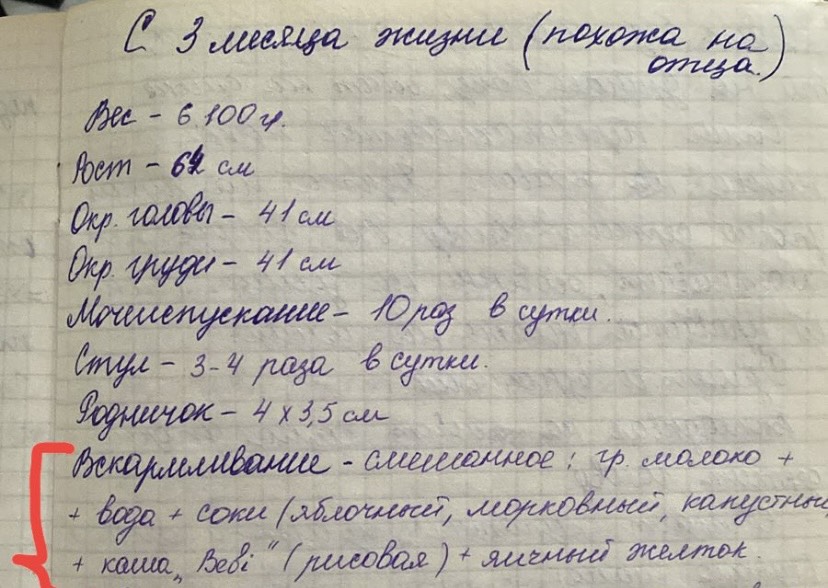 С 3 месяца жизни (похожа на
отца.)
Вес – 6.100 гр.
Рост – 61 см
Окр. головы – 41 см
Окр. груди – 41 см
Мочеиспускание – 10 раз в сутки.
Стул – 3-4 раза в сутки.
Родничок – 4 х 3,5 см
Вскармливание – смешанное: гр. молоко +
+ вода + соки (яблочный, морковный, капустный,
+ каша „Bebi" (рисовая) + яичный желток.